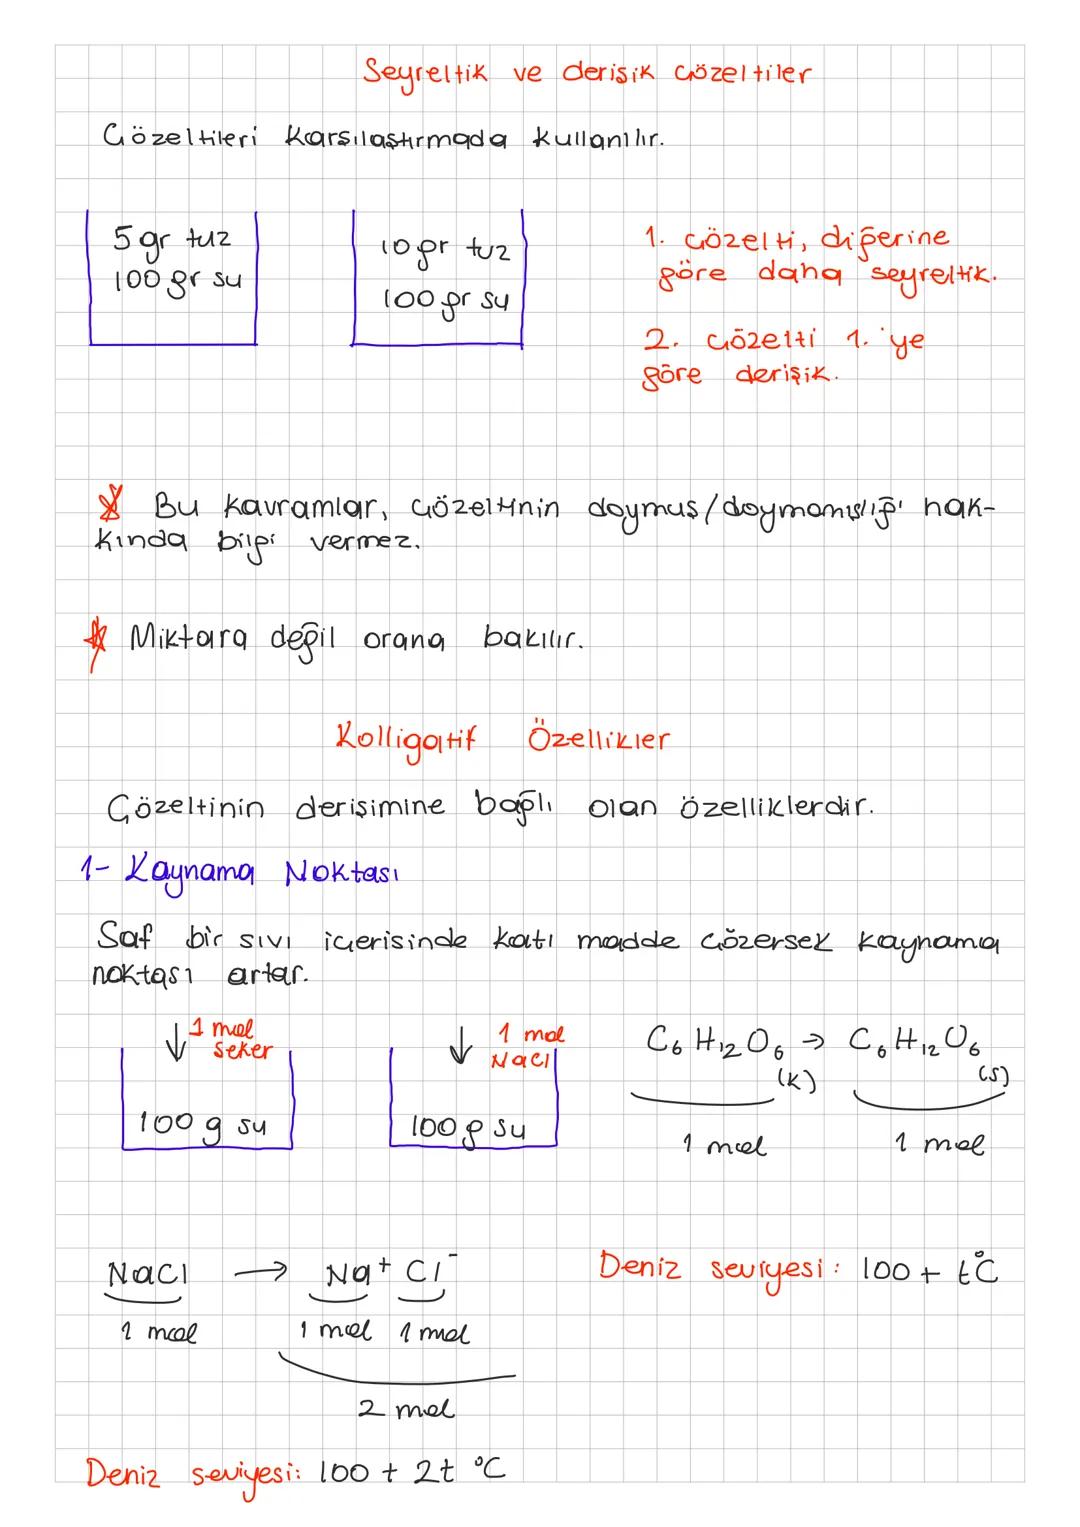 Seyreltik ve derişik çözeltiler
Çözeltileri karşılaştırmada kullanılır.
5 gr tuz
100 gr su
10 gr tuz
100 gr su
1. çözelti, diğerine
göre daha seyreltik.
2. çözelti 1.'ye
göre derişik.
Bu kavramlar, çözeltinin doymuş/doymamışlığı hak-
kında bilgi vermez.
Miktara değil orana bakılır.
Kolligatif Özellikler
Çözeltinin derişimine bağlı olan özelliklerdir.
1- Kaynama Noktası
Saf bir sıvı içerisinde katı madde çözersek kaynama
noktası artar.
↓ 1 mol
şeker
100 g su
↓ 1 mol
NaCl
100 g su
C₆H₁₂O₆ → C₆H₁₂O₆
(k) (s)
1 mol 1 mol
NaCl → Na⁺ Cl⁻
1 mol 1 mol 1 mol
2 mol
Deniz seviyesi: 100 + t°C
Deniz seviyesi: 100 + 2t °C